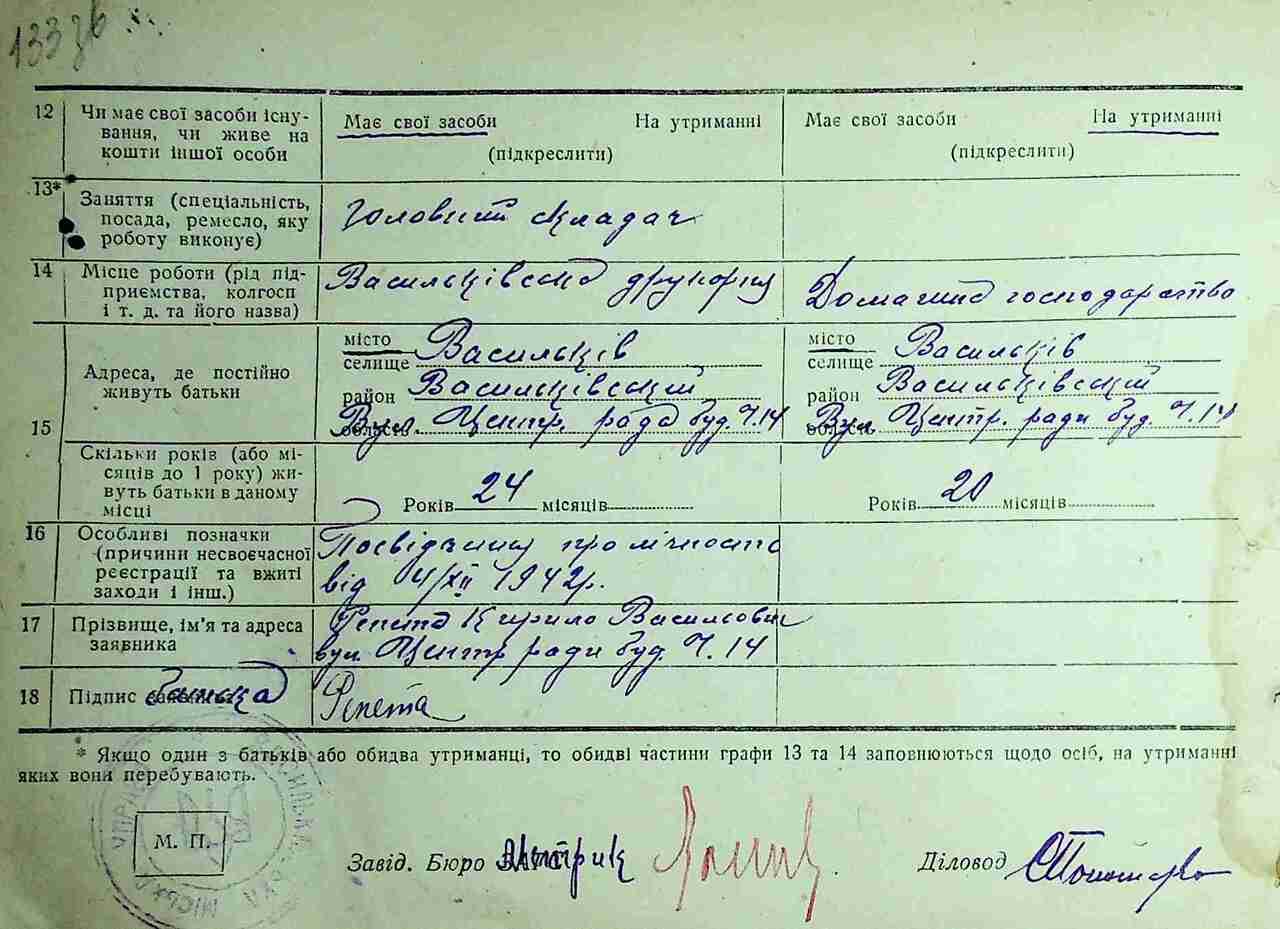 133зв
12 Чи має свої засоби існу-
вання, чи живе на
кошти іншої особи
Має свої засоби На утриманні
(підкреслити)
Має свої засоби На утриманні
(підкреслити)
13* Заняття (спеціальність,
посада, ремесло, яку
роботу виконує)
Головний складач
14 Місце роботи (рід під-
приємства, колгосп
і т. д. та його назва)
Васильківська друкарня
Домашнє господарство
15 Адреса, де постійно
живуть батьки
місто
селище Васильків
район Васильківський
область Вул. Центр. ради буд. Ч. 14
місто
селище Васильків
район Васильківський
область Вул. Центр. ради буд. Ч. 14
Скільки років (або мі-
сяців до 1 року) жи-
вуть батьки в даному
місці
Років 24 місяців
Років 20 місяців
16 Особливі позначки
(причини несвоєчасної
реєстрації та вжиті
заходи і інш.)
Посвідчення про лічность
від 4/XII 1942р.
17 Прізвище, ім'я та адреса
заявника
Репета Кирило Васильович
вул. Центр ради буд. Ч. 14
18 Підпис батька
Репета
* Якщо один з батьків або обидва утриманці, то обидві частини графи 13 та 14 заповнюються щодо осіб, на утриманні
яких вони перебувають.
М. П.
Завід. Бюро Метрик
Діловод